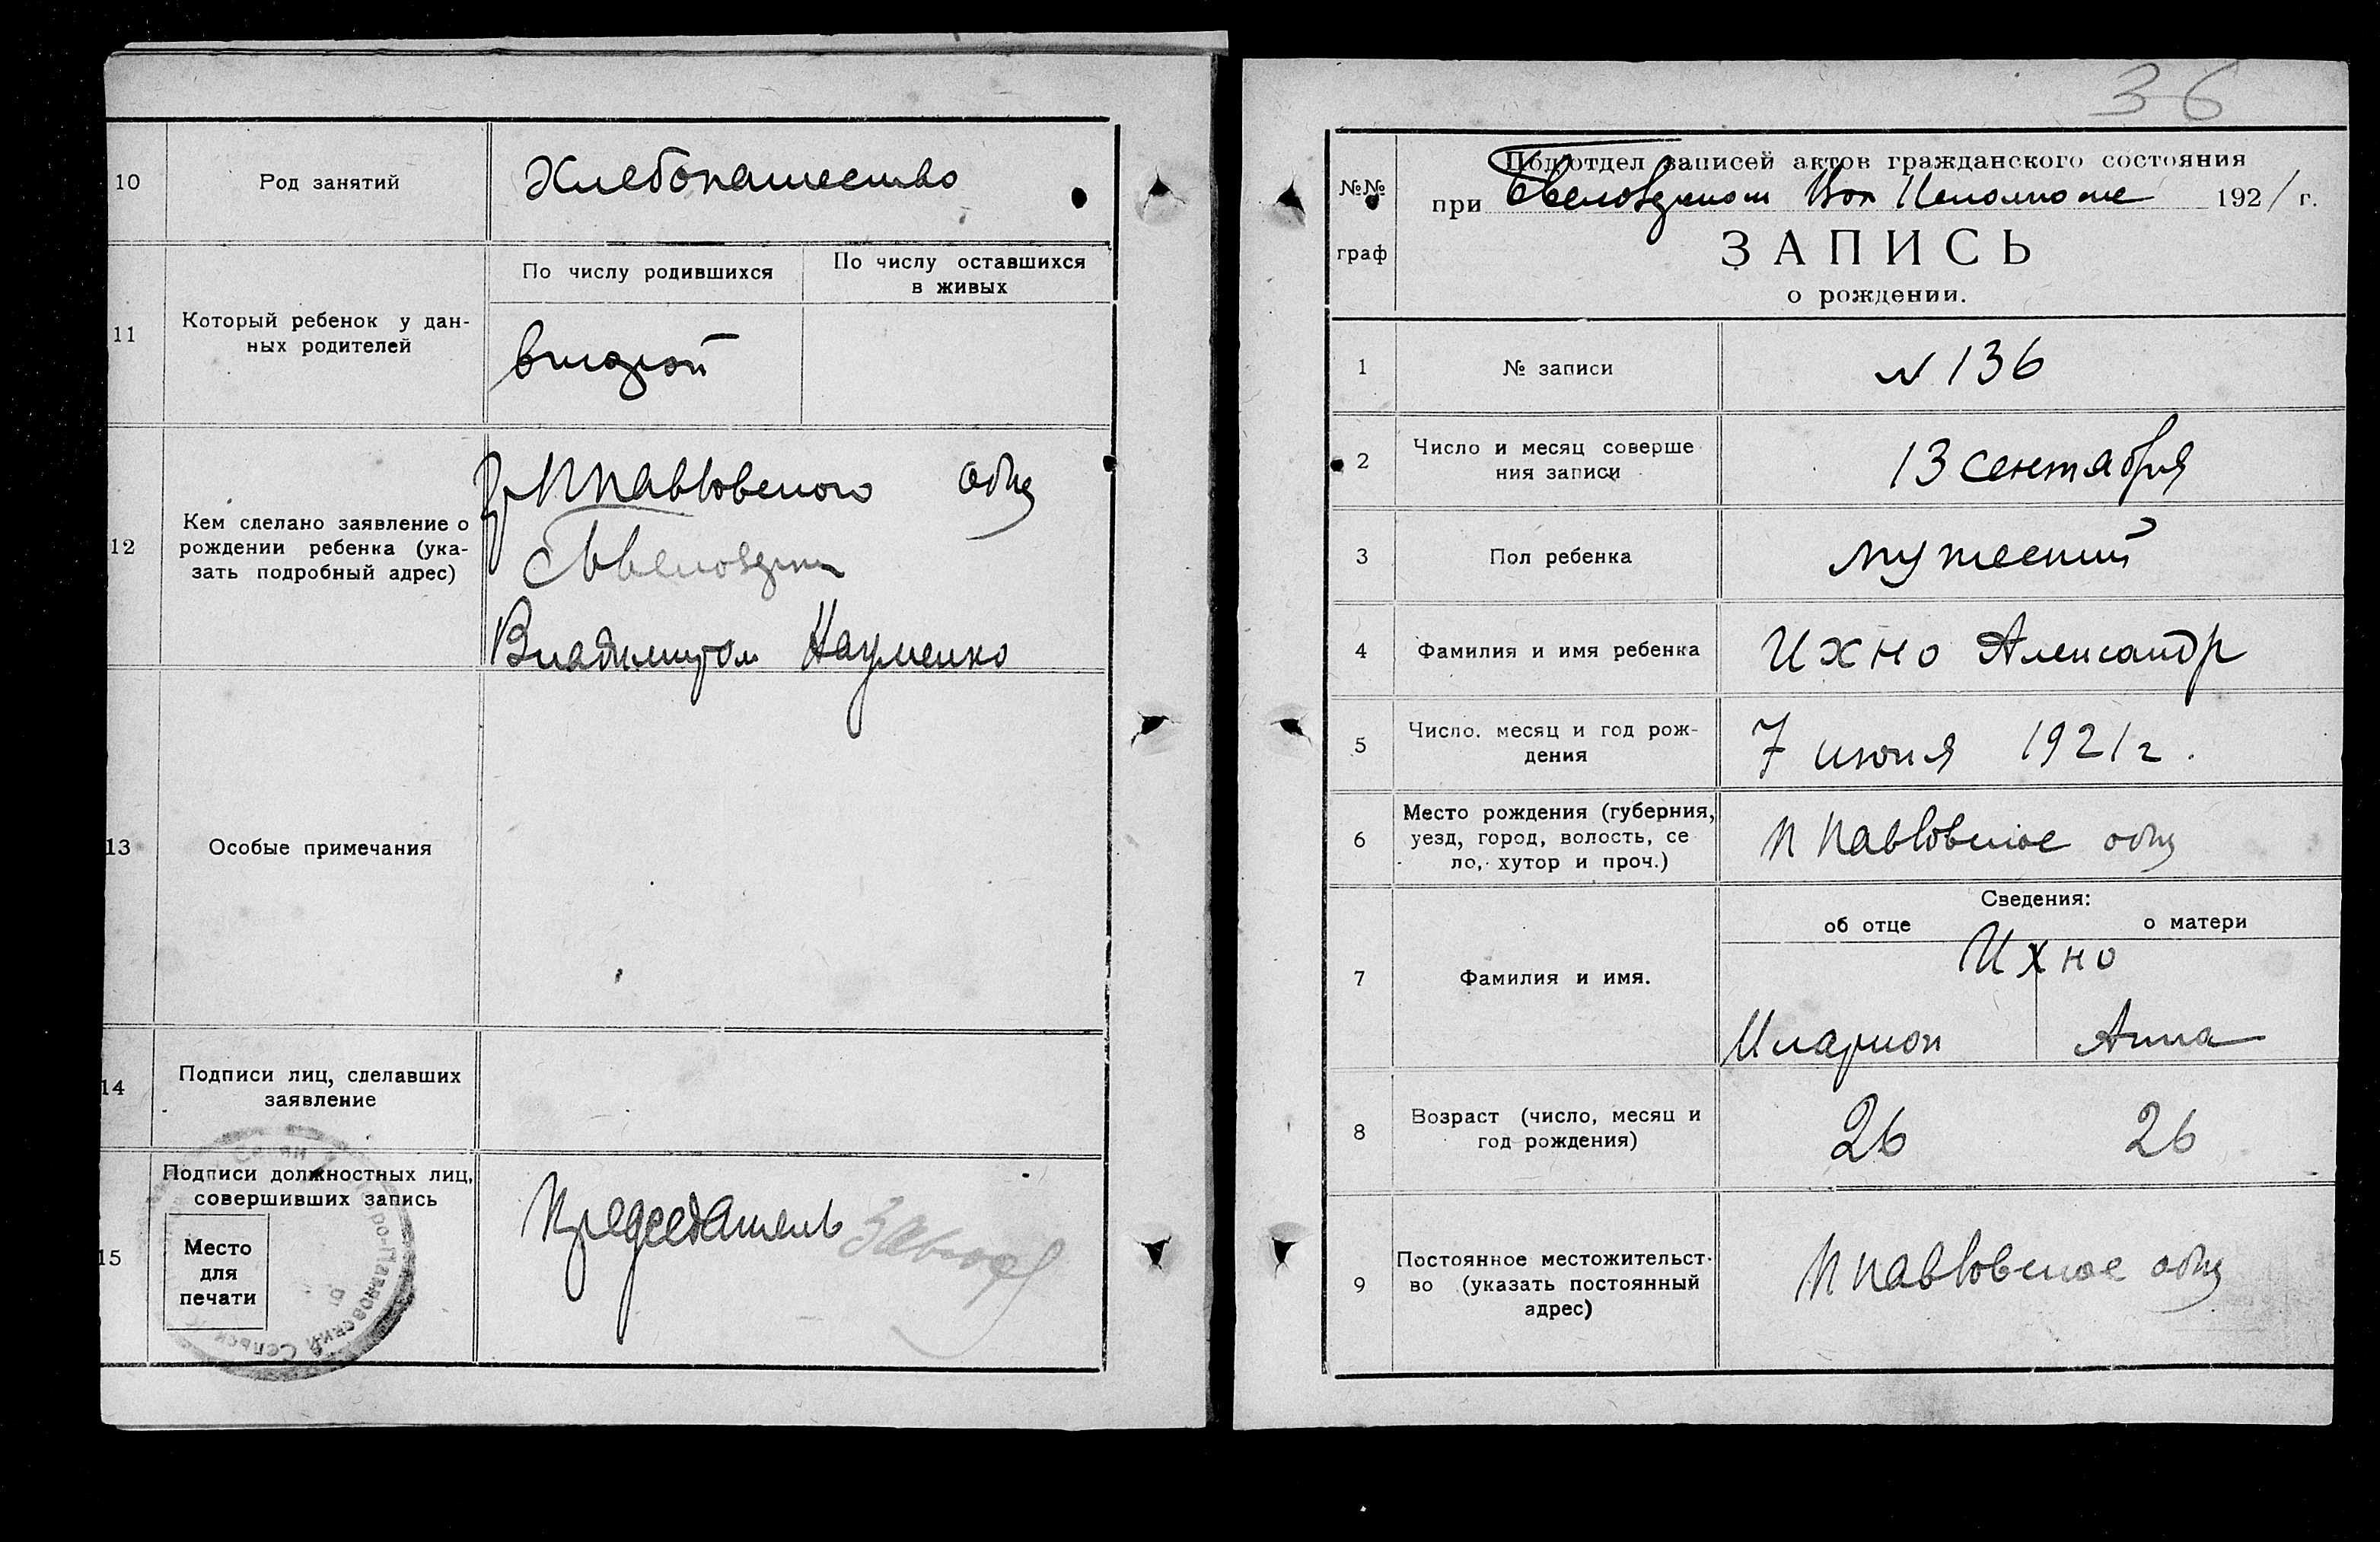 10
Род занятий
Хлебопашество
11
Который ребенок у дан-
ных родителей
По числу родившихся
По числу оставшихся
в живых
второй
12
Кем сделано заявление о
рождении ребенка (ука-
зать подробный адрес)
гр П павловского общ
Владимиром Науменко
13
Особые примечания
14
Подписи лиц, сделавших
заявление
15
Подписи должностных лиц,
совершивших запись
Место
для
печати
Председатель
36
№№
граф
Подотдел записей актов гражданского состояния
при Вол Исполкоме 1921 г.
ЗАПИСЬ
о рождении.
1
№ записи
N 136
2
Число и месяц соверше
ния записи
13 сентября
3
Пол ребенка
мужеский
4
Фамилия и имя ребенка
Ихно Александр
5
Число. месяц и год рож-
дения
7 июня 1921 г.
6
Место рождения (губерния,
уезд, город, волость, се
ло, хутор и проч.)
П павловское общ
Сведения:
об отце
о матери
7
Фамилия и имя.
Ихно
Иларион
Анна
8
Возраст (число, месяц и
год рождения)
26
26
9
Постоянное местожительст-
во (указать постоянный
адрес)
П павловское общ